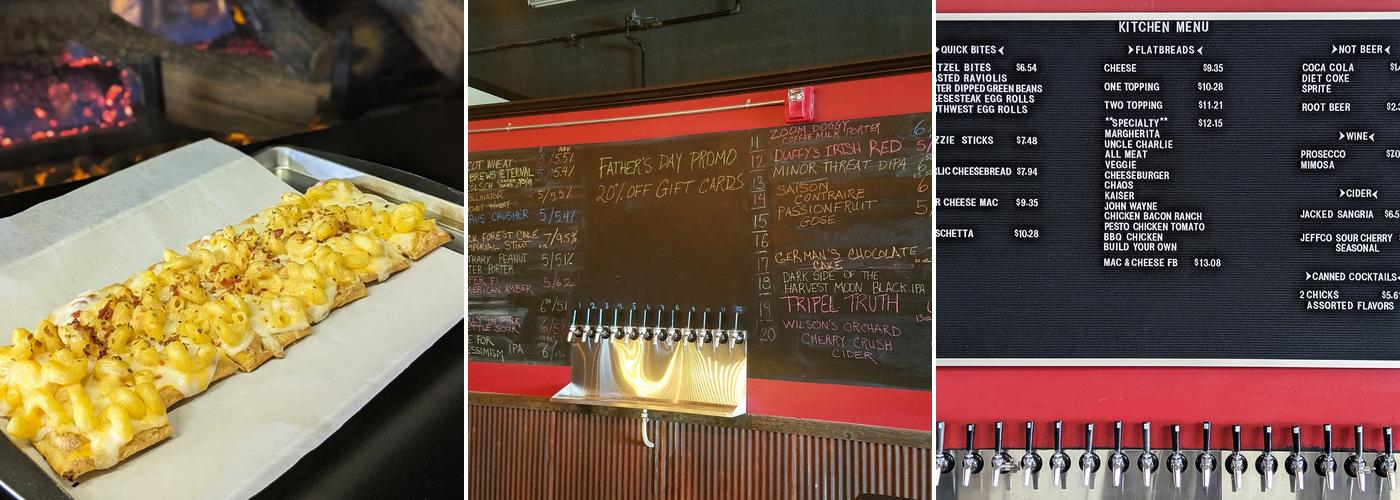 5/5.51
5/5.4%
5/5.5%
CRUSHER 5/5.4%
FOREST CAKE 7/9.5%
STOUT
PEANUT 5/5%
PORTER
AMBER 5/6.2
IPA
FATHER'S DAY PROMO
20% OFF GIFT CARDS
1 2 3 4 5 6 7 8 9 10 11 12
11 ZOOM DOGGY
COFFEE MILK PORTER
12 DUFFY'S IRISH RED
MINOR THREAT DIPA
13
14 SAISON
CONTRAIRE
15 PASSIONFRUIT
GOSE
16
17 GERMAN'S CHOCOLATE
CAKE
18 DARK SIDE OF THE
HARVEST MOON BLACK IPA
19 TRIPEL TRUTH
20 WILSON'S ORCHARD
CHERRY CRUSH
CIDER
KITCHEN MENU
QUICK BITES
BITES $6.54
RAVIOLIS
DIPPED GREEN BEANS
EGG ROLLS
EGG ROLLS
STICKS $7.48
CHEESEBREAD $7.94
CHEESE MAC $9.35
$10.28
FLATBREADS
CHEESE $9.35
ONE TOPPING $10.28
TWO TOPPING $11.21
**SPECIALTY** $12.15
MARGHERITA
UNCLE CHARLIE
ALL MEAT
VEGGIE
CHEESEBURGER
CHAOS
KAISER
JOHN WAYNE
CHICKEN BACON RANCH
PESTO CHICKEN TOMATO
BBQ CHICKEN
BUILD YOUR OWN
MAC & CHEESE FB $13.08
NOT BEER
COCA COLA
DIET COKE
SPRITE
ROOT BEER
WINE
PROSECCO
MIMOSA
CIDER
JACKED SANGRIA
JEFFCO SOUR CHERRY
SEASONAL
CANNED COCKTAILS
2 CHICKS
ASSORTED FLAVORS